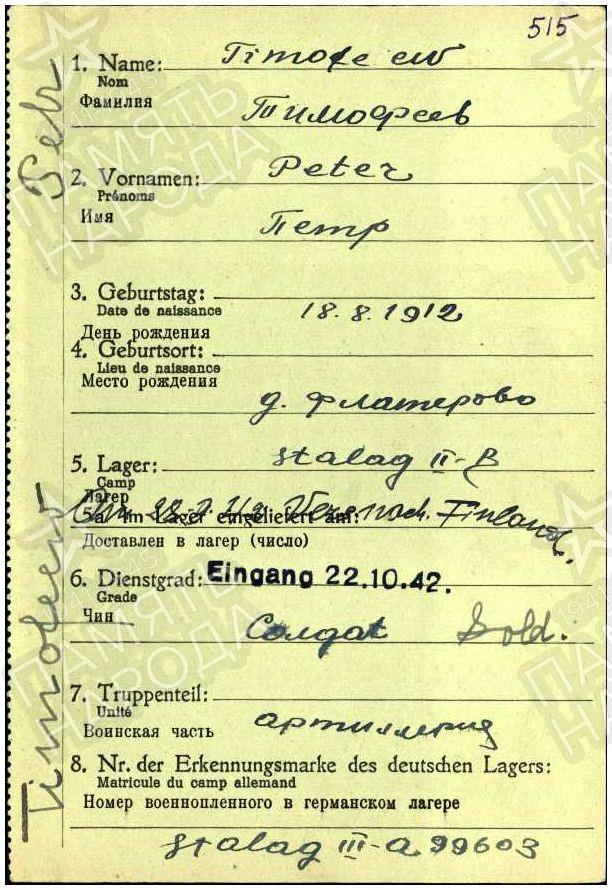 515
1. Name: Timofeew
Nom
Фамилия Тимофеев
2. Vornamen: Peter
Prénoms
Имя Петр
3. Geburtstag:
Date de naissance 18.8.1912
День рождения
4. Geburtsort:
Lieu de naissance
Место рождения
д. Флатерово
5. Lager: Stalag II-B
Camp
Лагер
5a Im Lager eingeliefert am:
nach Finland.
Доставлен в лагер (число)
6. Dienstgrad: Eingang 22.10.42.
Grade
Чин Солдат Sold.
7. Truppenteil:
Unité
Воинская часть артиллерия
8. Nr. der Erkennungsmarke des deutschen Lagers:
Matricule du camp allemand
Номер военнопленного в германском лагере
Stalag III-A 99603
Timofeew Petr
ПАМЯТЬ
НАРОДА